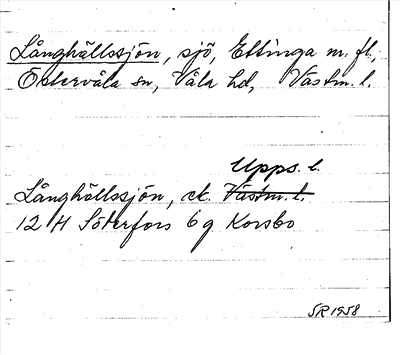 Långhällssjön, sjö, Ettinga m. fl.,
Östervåla sn, Våla hd, Västm. l.
Upps. l.
Långhällssjön, ek. Västm. l.
12 H Söderfors 6g Korsbo
SR 1958